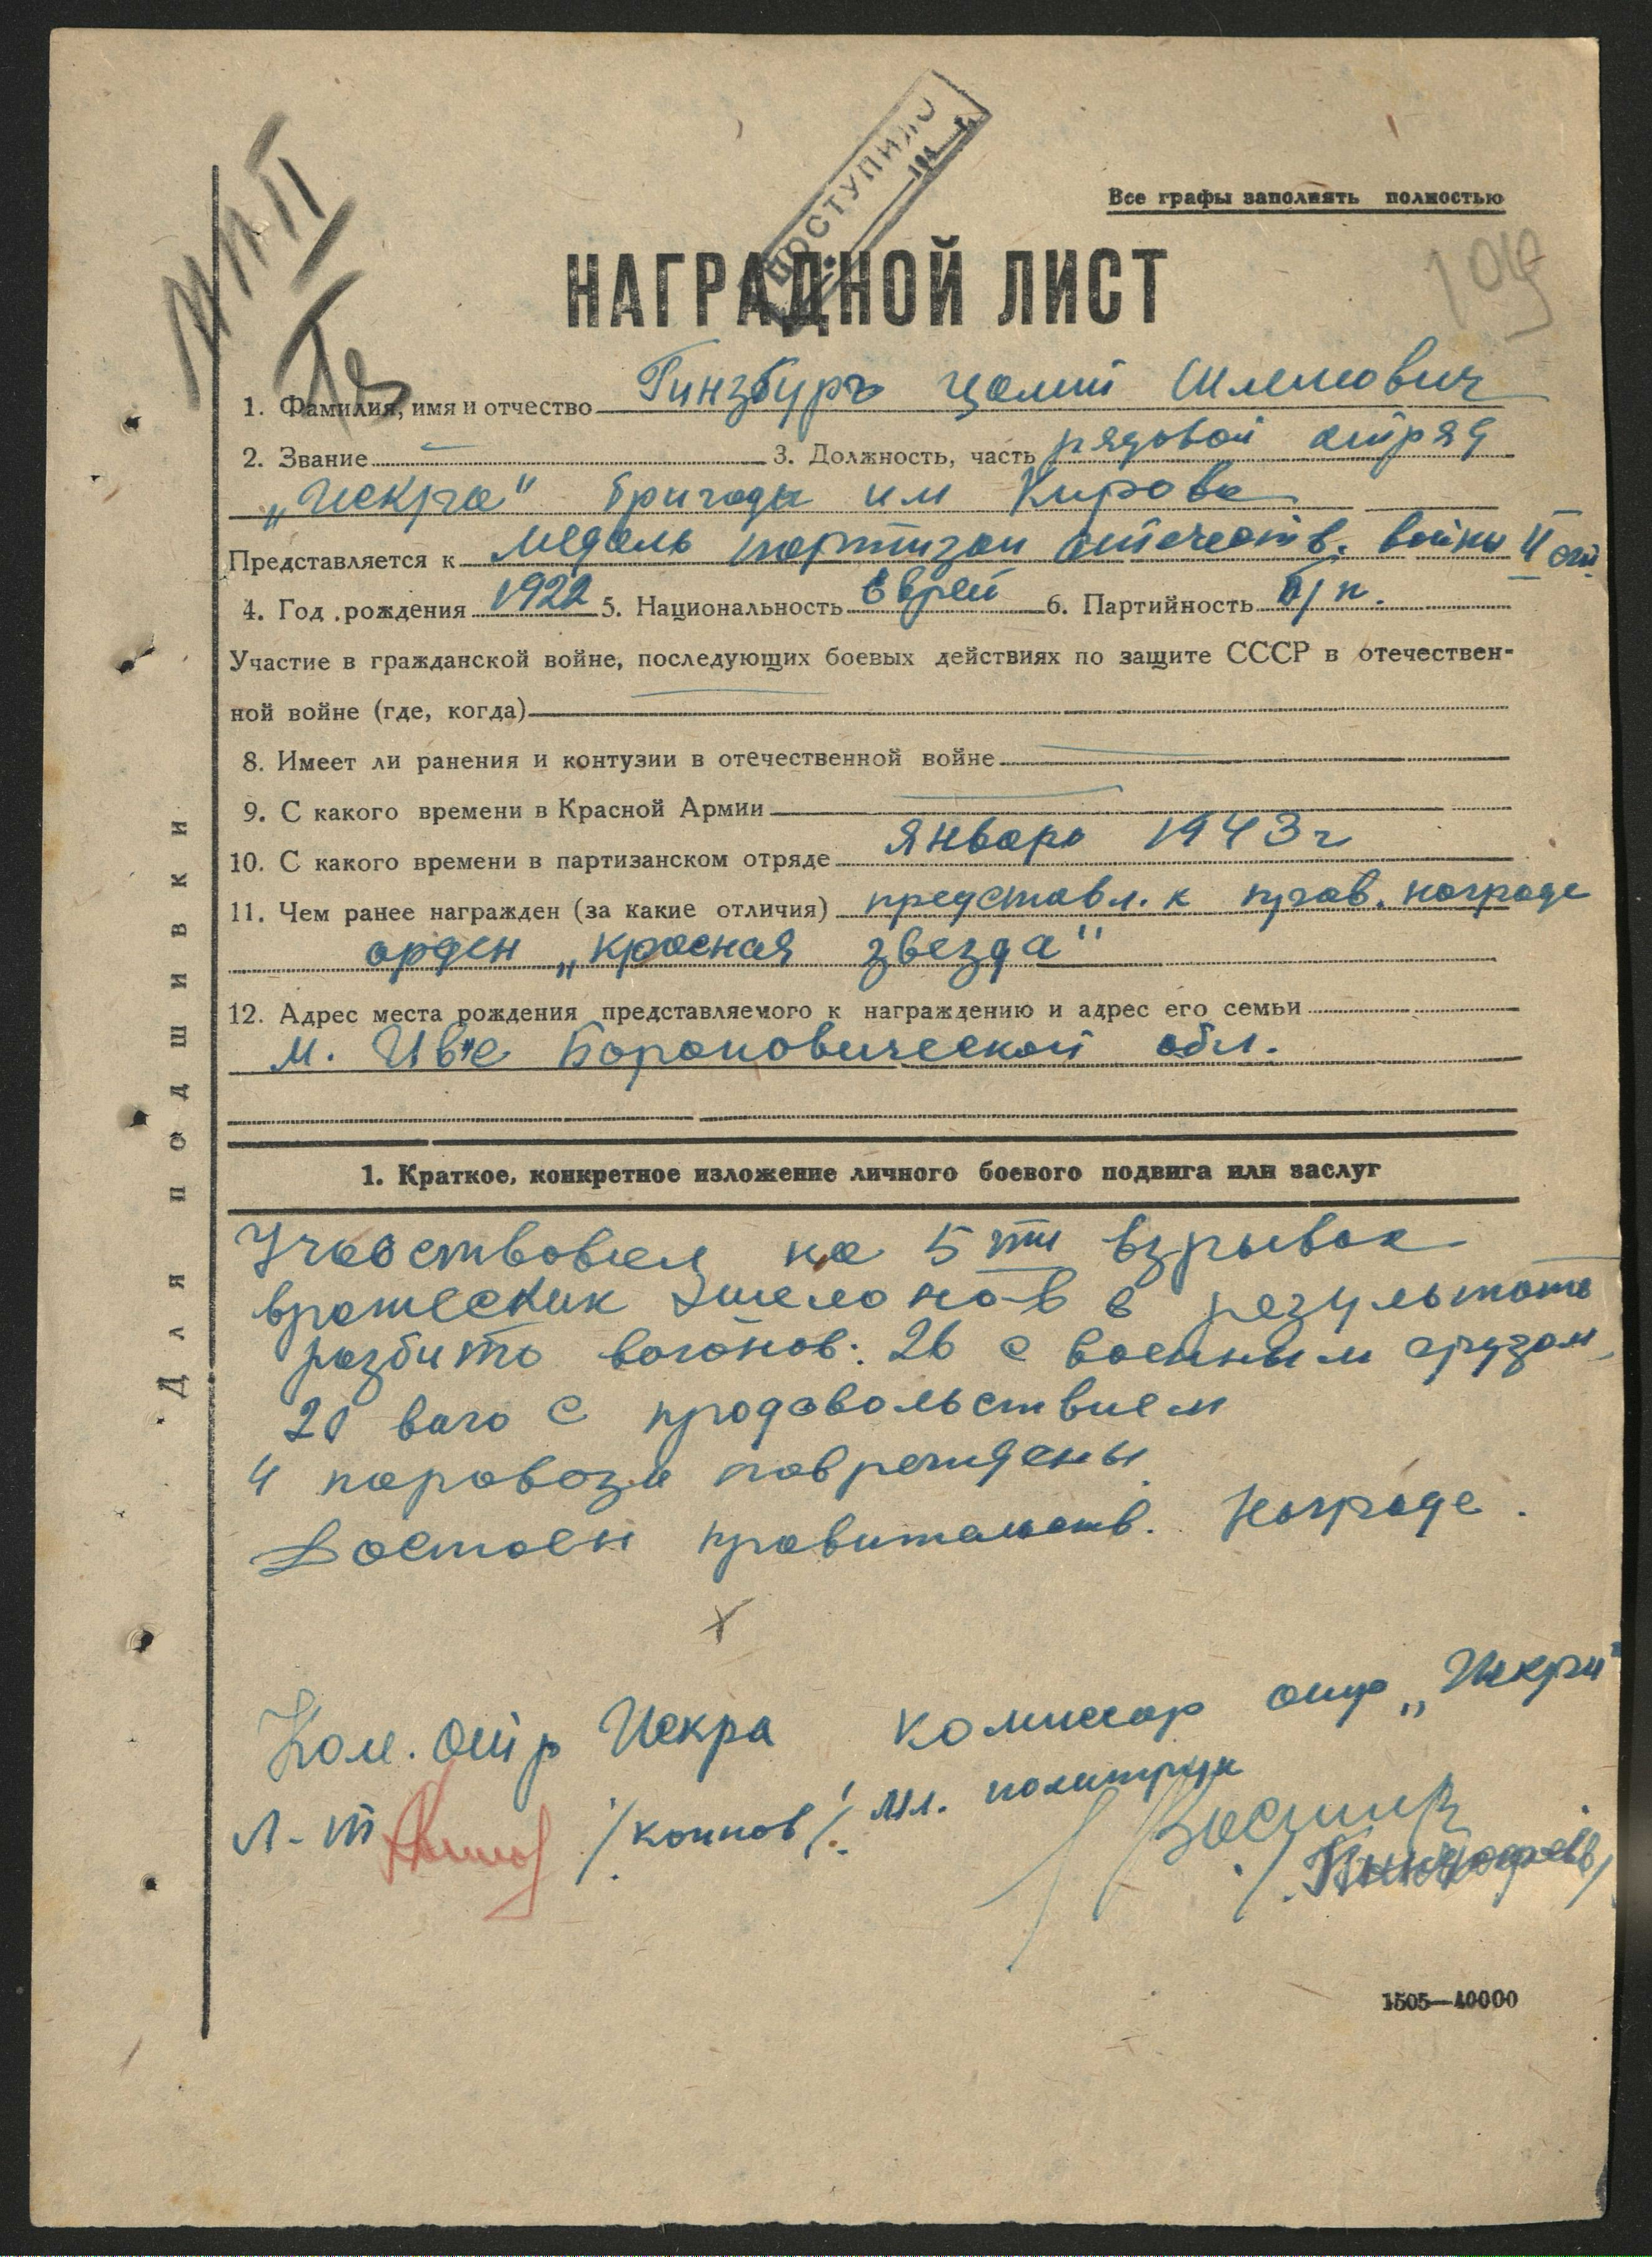 ПОСТУПИЛО
194 г.
Все графы заполнять полностью
109
НАГРАДНОЙ ЛИСТ
1. Фамилия, имя и отчество Гинзбург Шлемович
2. Звание — 3. Должность, часть рядовой отряд
„Искра" бригады им Кирова
Представляется к медаль партизан отечеств. войны II ст.
4. Год рождения 1922 5. Национальность Еврей 6. Партийность б/п.
Участие в гражданской войне, последующих боевых действиях по защите СССР в отечествен-
ной войне (где, когда)
8. Имеет ли ранения и контузии в отечественной войне
9. С какого времени в Красной Армии
10. С какого времени в партизанском отряде январь 1943 г
11. Чем ранее награжден (за какие отличия) представл. к прав. награде
орден „красная звезда"
12. Адрес места рождения представляемого к награждению и адрес его семьи
м. Ивье Барановической обл.
Для подшивки
1. Краткое, конкретное изложение личного боевого подвига или заслуг
Участвовал на 5ти взрывах
вражеских эшелонов в результате
разбито вагонов: 26 с военным грузом,
20 ваго с продовольствием
4 паровоза повреждены
Достоен правительств. награде.
Ком. отр Искра комиссар отр „Искра"
Л-т /коннов/ мл. политрук
1505—40000